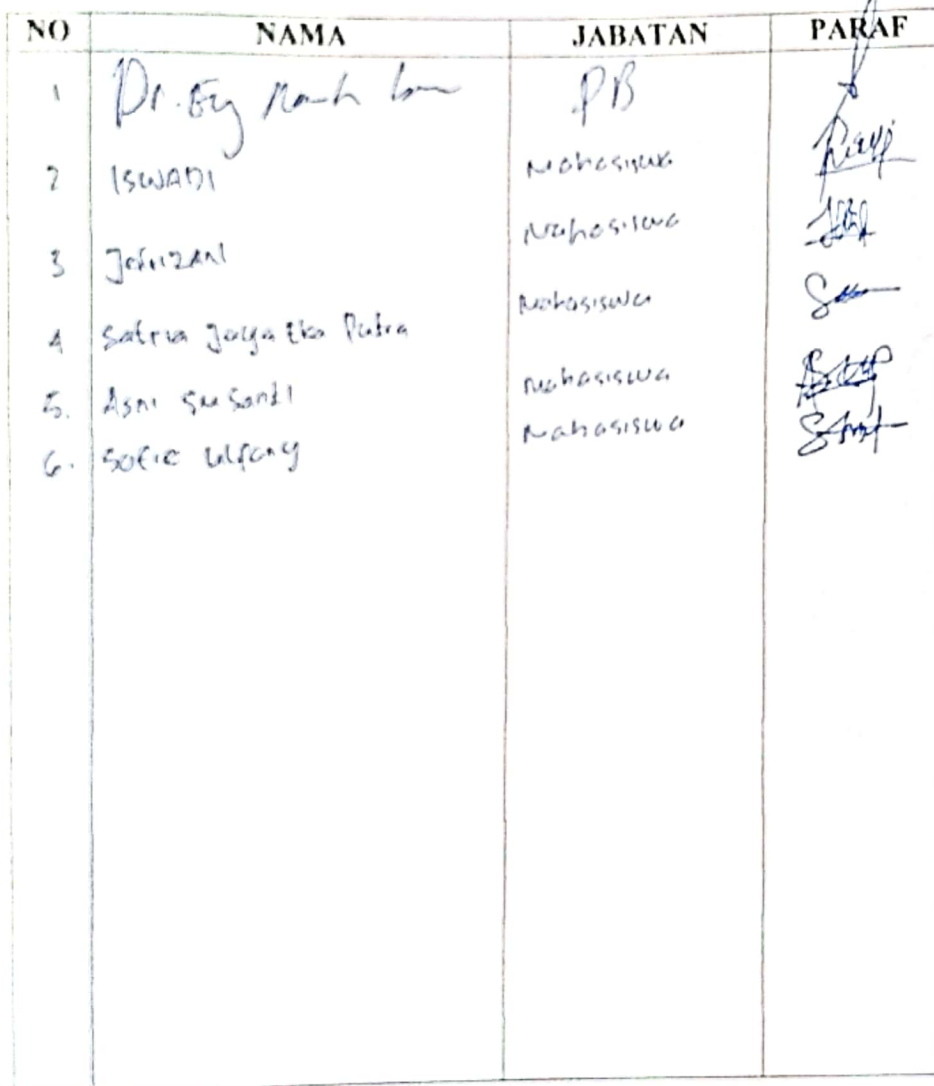 NO NAMA JABATAN PARAF
1 Dr. PB
2 ISWADI Mahasiswa
3 Jefrizani Mahasiswa
4 Satria Jaya Eka Putra Mahasiswa
5. Asni Susanti Mahasiswa
6. Sofie Ulfany Mahasiswa